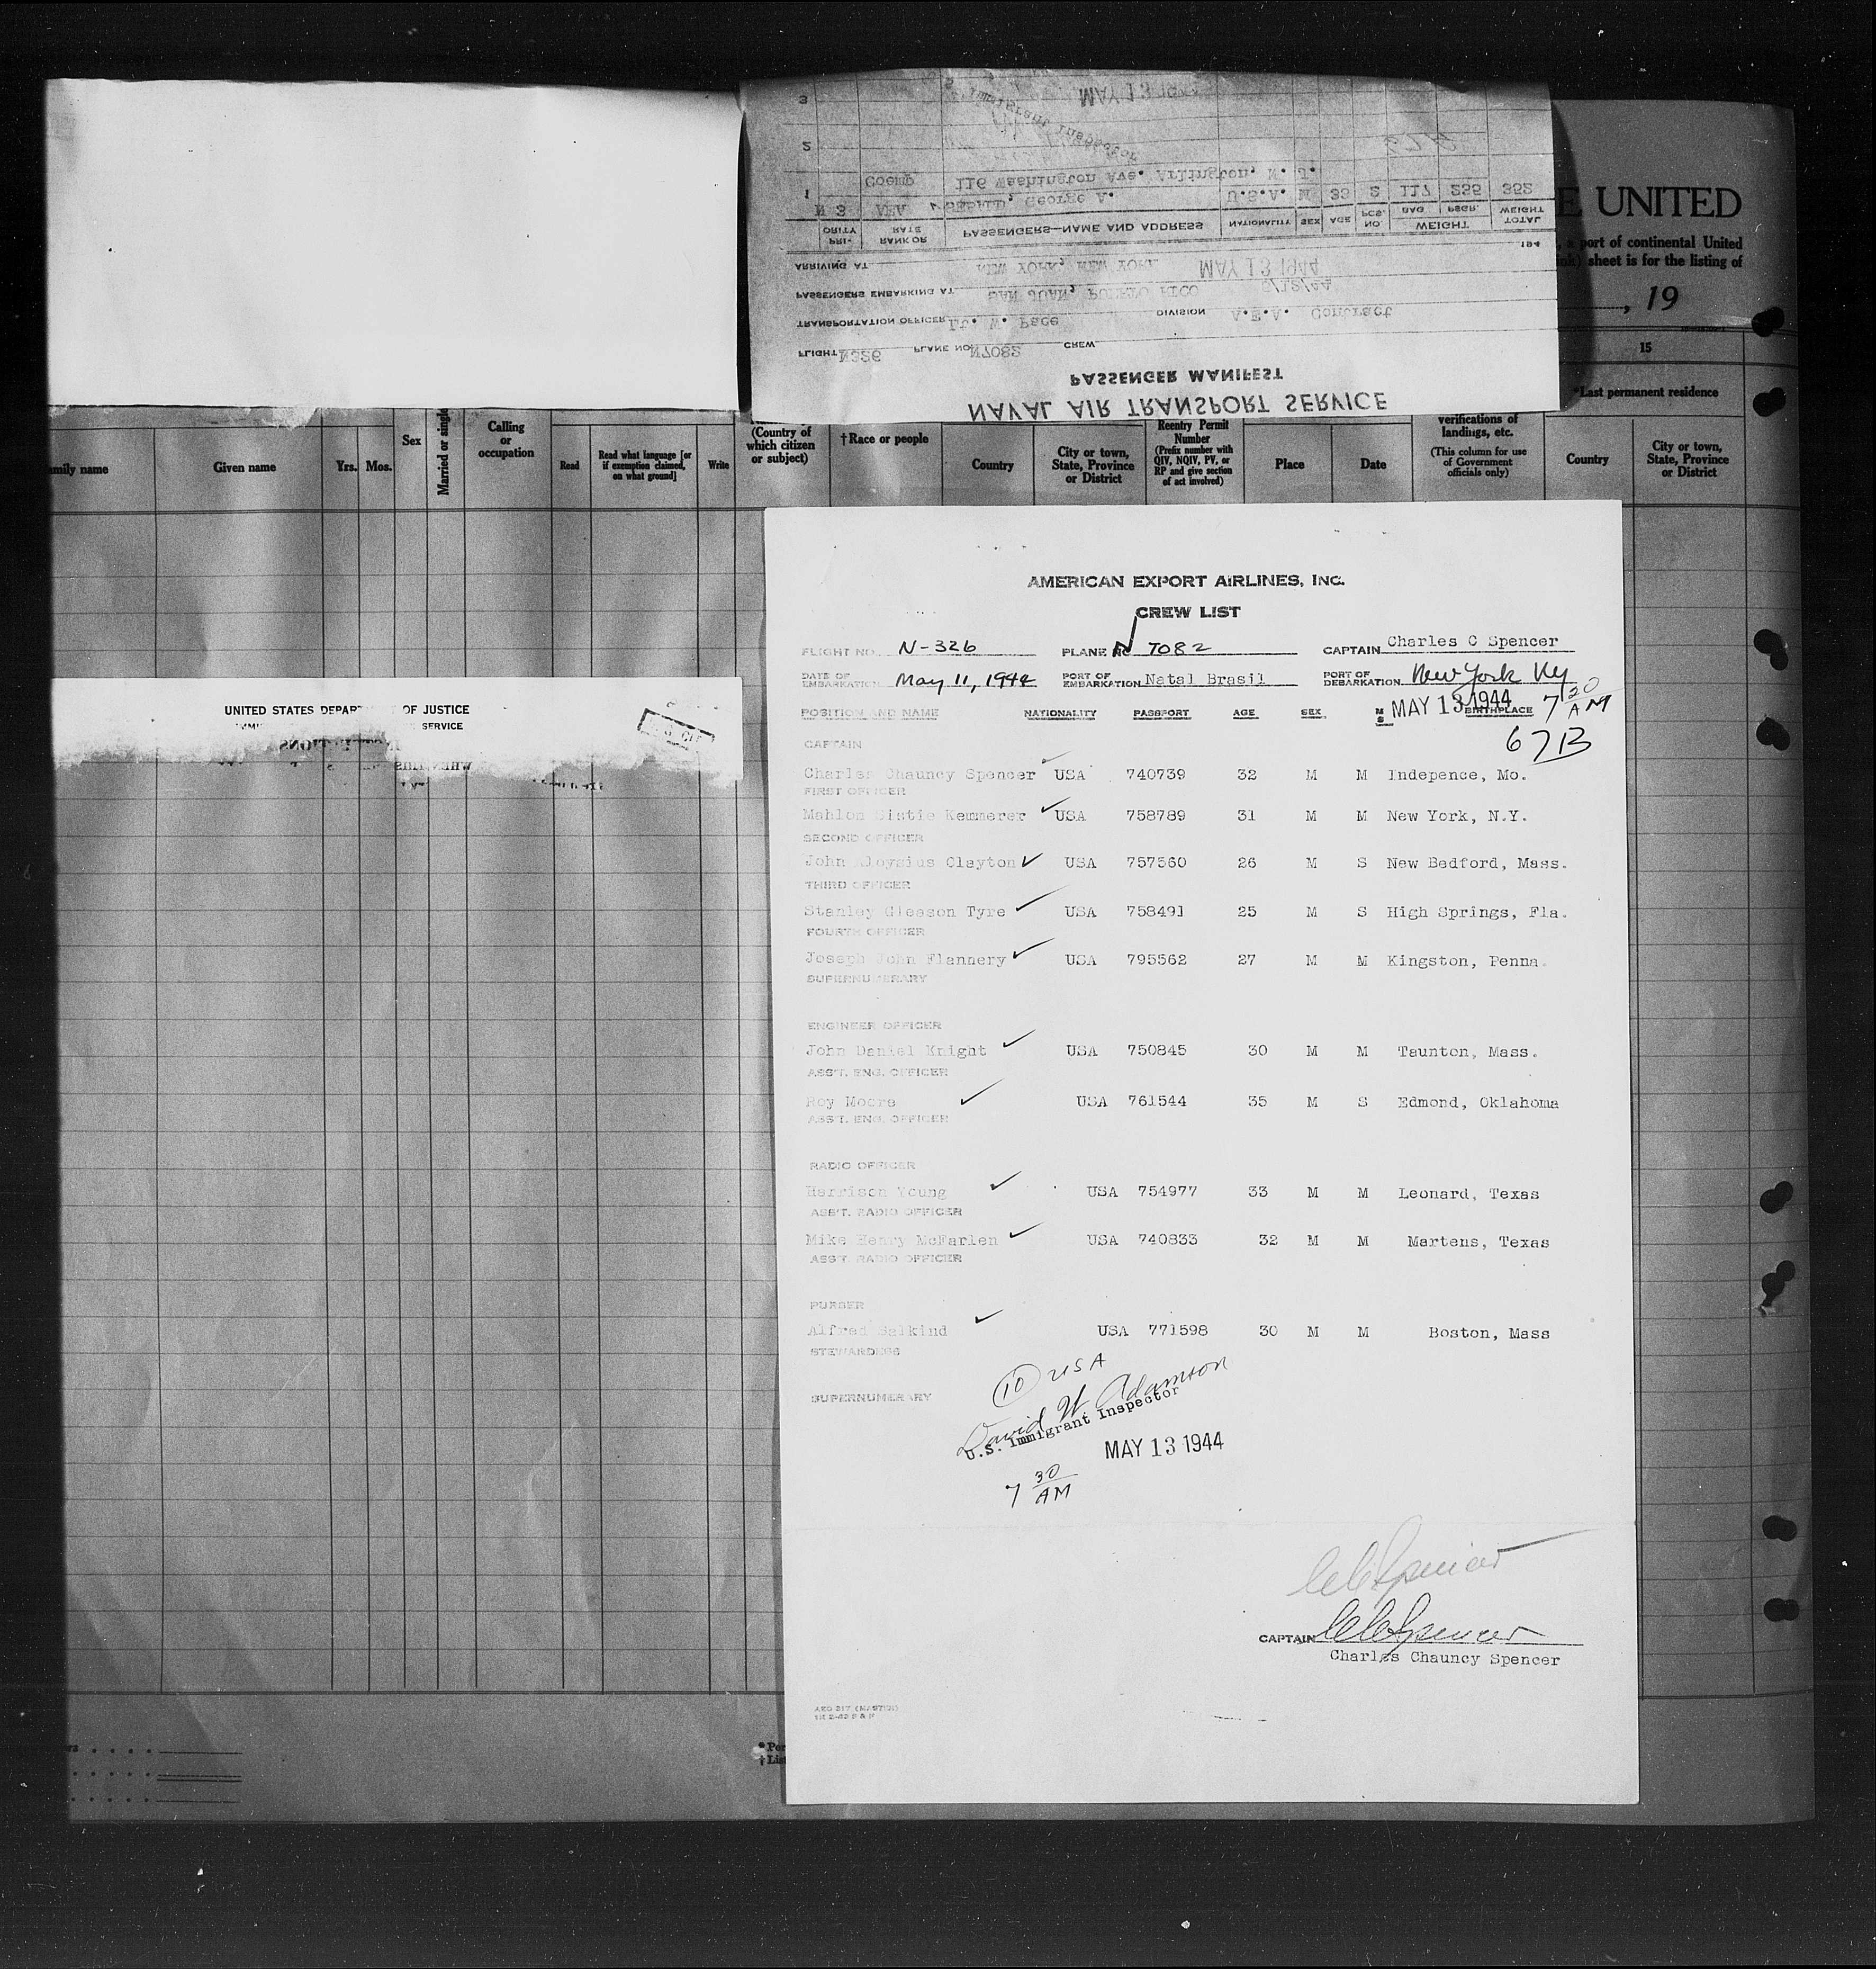 3
MAY 13 19
Immigrant Inspector
2
Coemp 116 Washington Ave. Arlington, N. J.
1 N 3 AEA George A. U.S.A. M 33 2 117 235 352
PRI-
ORITY RANK OR
RATE PASSENGERS—NAME AND ADDRESS NATIONALITY SEX AGE NO.
PCS. WEIGHT
BAG PSGR. TOTAL
WEIGHT
ARRIVING AT NEW YORK, NEW YORK MAY 13 1944 194
PASSENGERS EMBARKING AT SAN JUAN, PUERTO RICO 5/12/44
TRANSPORTATION OFFICER Lt. W. Pace DIVISION A.E.A. Contract
FLIGHT N326 PLANE NO. N7082 CREW
PASSENGER MANIFEST
NAVAL AIR TRANSPORT SERVICE
E UNITED
a port of continental United
sheet is for the listing of
, 19
15
*Last permanent residence
mily name
Given name
Yrs. Mos.
Sex
Married or single
Calling
or
occupation
Read
Read what language [or
if exemption claimed,
on what ground]
Write
(Country of
which citizen
or subject)
†Race or people
Country
City or town,
State, Province
or District
Reentry Permit
Number
(Prefix number with
QIV, NQIV, PV, or
RP and give section
of act involved)
Place
Date
verifications of
landings, etc.
(This column for use
of Government
officials only)
Country
City or town,
State, Province
or District
UNITED STATES DEPART OF JUSTICE
IMMI SERVICE
AMERICAN EXPORT AIRLINES, INC.
CREW LIST
FLIGHT NO. N-326 PLANE NO N 7082 CAPTAIN Charles C Spencer
DATE OF
EMBARKATION May 11, 1944 PORT OF
EMBARKATION Natal Brasil PORT OF
DEBARKATION New York NY
MAY 13 1944 7 20 AM
POSITION AND NAME NATIONALITY PASSPORT AGE SEX M
S BIRTHPLACE
67B
CAPTAIN
Charles Chauncy Spencer USA 740739 32 M M Indepence, Mo.
FIRST OFFICER
Mahlon Distie Kemmerer USA 758789 31 M M New York, N.Y.
SECOND OFFICER
John Aloysius Clayton USA 757560 26 M S New Bedford, Mass.
THIRD OFFICER
Stanley Gleeson Tyre USA 758491 25 M S High Springs, Fla.
FOURTH OFFICER
Joseph John Flannery USA 795562 27 M M Kingston, Penna.
SUPERNUMERARY
ENGINEER OFFICER
John Daniel Knight USA 750845 30 M M Taunton, Mass.
ASS'T. ENG. OFFICER
Roy Moore USA 761544 35 M S Edmond, Oklahoma
ASS'T. ENG. OFFICER
RADIO OFFICER
Harrison Young USA 754977 33 M M Leonard, Texas
ASS'T. RADIO OFFICER
Mike Henry McFarlen USA 740833 32 M M Martens, Texas
ASS'T. RADIO OFFICER
PURSER
Alfred Salkind USA 771598 30 M M Boston, Mass
STEWARDESS
SUPERNUMERARY
10 USA
David W Adamson
U.S. Immigrant Inspector
MAY 13 1944
7 30 AM
CC Spencer
CAPTAIN CC Spencer
Charles Chauncy Spencer
*Per
†List